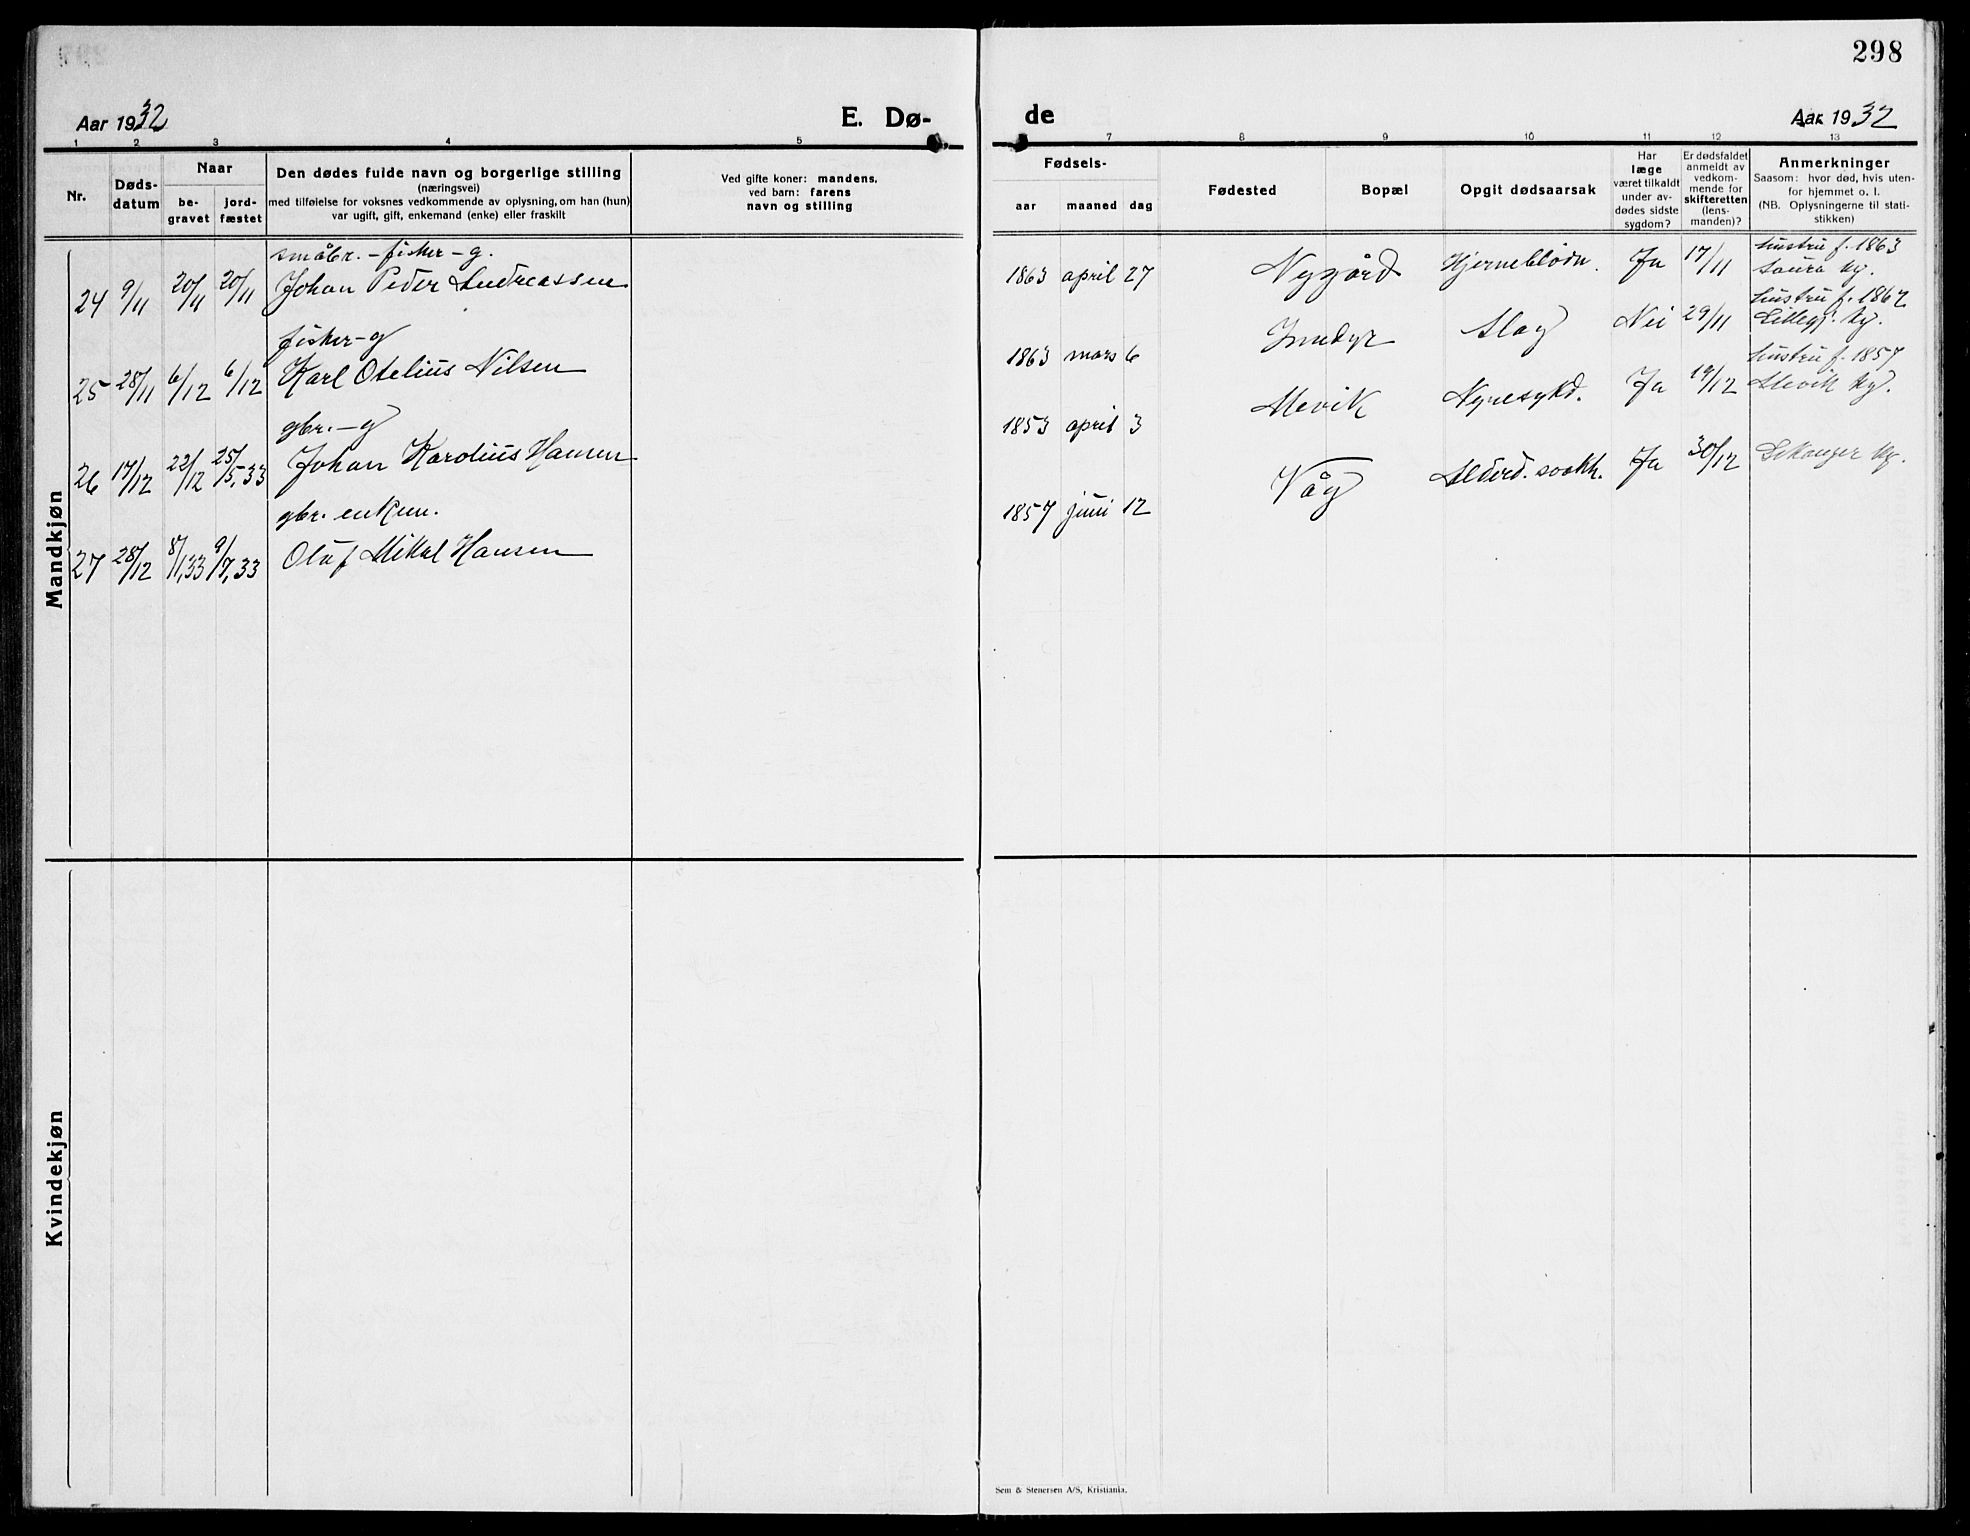 298
Aar 1932
E. Dø-
de
Aar 1932
1 2 3 4 5 7 8 9 10 11 12 13
Nr.
Døds-
datum
Naar
be-
gravet
jord-
fæstet
Den dødes fulde navn og borgerlige stilling
(næringsvei)
med tilføielse for voksnes vedkommende av oplysning, om han (hun)
var ugift, gift, enkemand (enke) eller fraskilt
Ved gifte koner: mandens,
ved barn: farens
navn og stilling
Fødsels-
aar maaned dag
Fødested
Bopæl
Opgit dødsaarsak
Har
læge
været tilkaldt
under av-
dødes sidste
sygdom?
Er dødsfaldet
anmeldt av
vedkom-
mende for
skifteretten
(lens-
manden)?
Anmerkninger
Saasom: hvor død, hvis uten-
for hjemmet o. l.
(NB. Oplysningerne til stati-
stikken)
Mandkjøn
småbr. - fisker - g.
24 9/11 20/11 20/11 Johan Peder Andreassen
1863 april 27 Nygård Hjerneblødn. Ja 17/11
hustru f. 1863
Saura kg.
fisker - g
25 28/11 6/12 6/12 Karl Otelius Nilsen
1863 mars 6 Inndyr Slag Nei 29/11
hustru f. 1862
Lillegj. kg.
gbr. - g
26 17/12 22/12 25/5,33 Johan Karolius Hansen
1853 april 3 Mevik Nyresykd. Ja 19/12
hustru f. 1857
Mevik kg.
gbr. enkem.
27 28/12 8/1,33 9/7,33 Olaf Mikal Hansen
1857 juni 12 Våg Alderd. svakh. Ja 30/12
kg.
Kvindekjøn
Sem & Stenersen A/S, Kristiania.